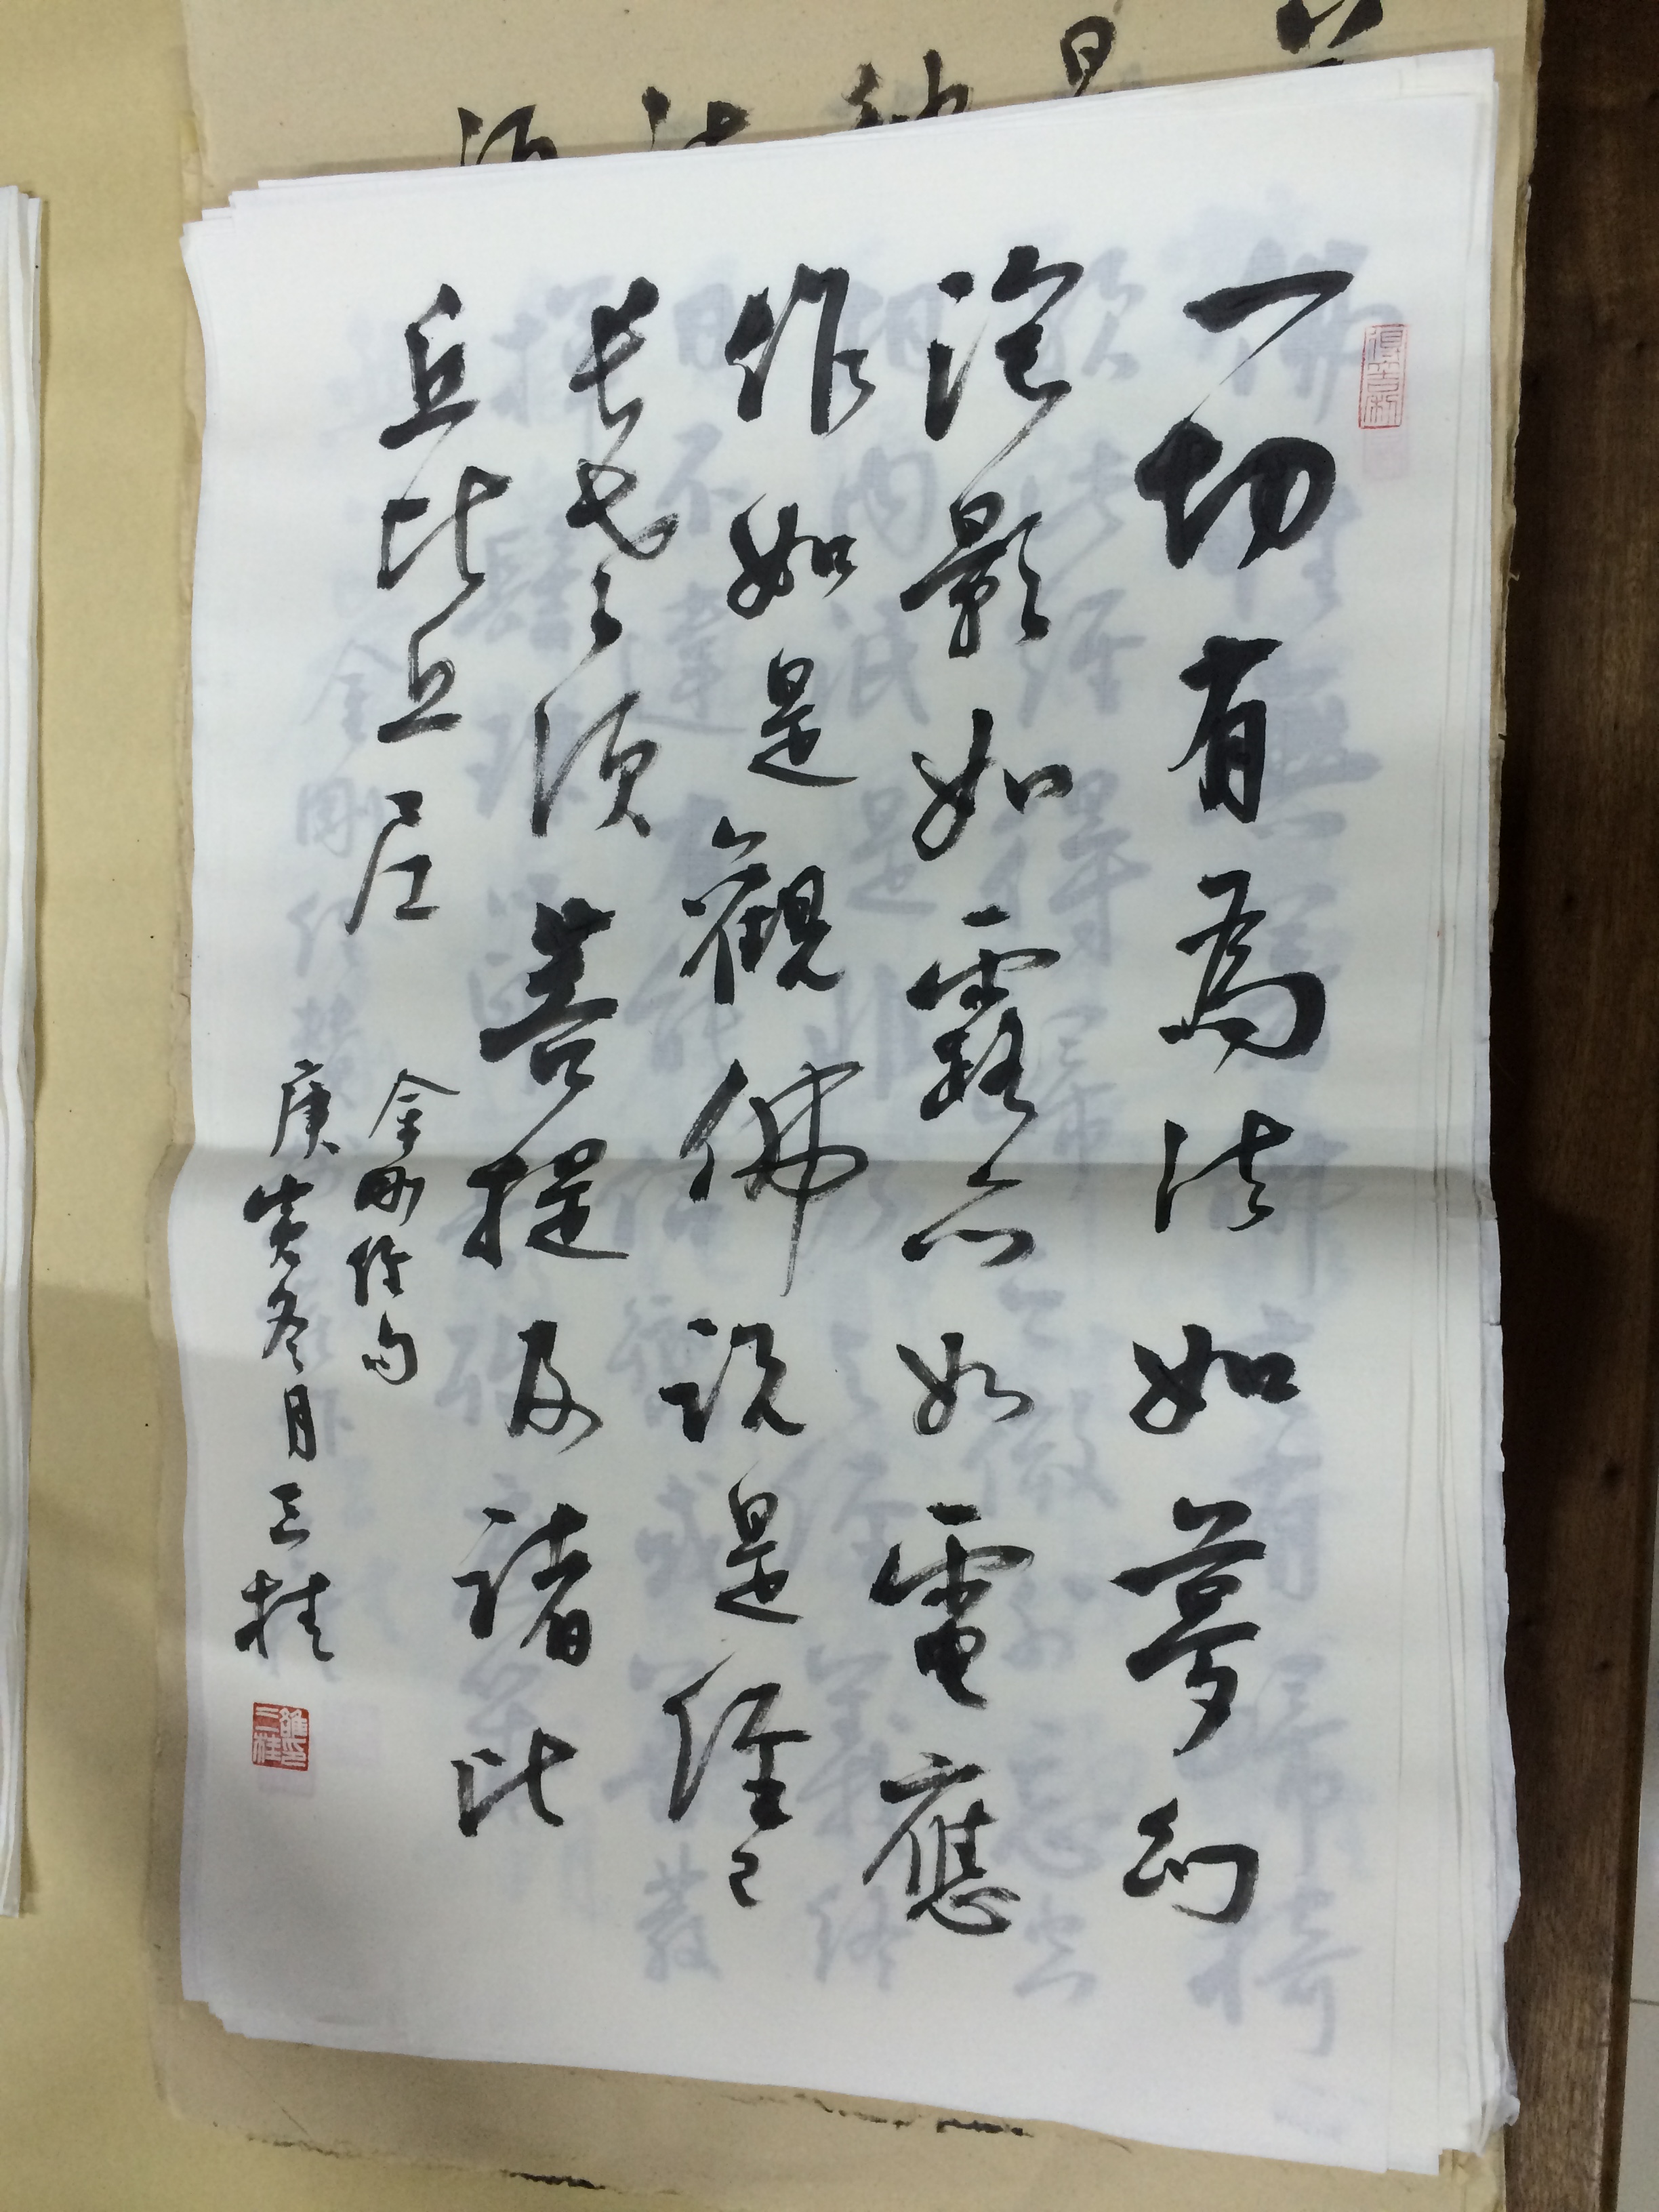 一切有為法如夢幻
泡影如露亦如電應
作如是觀佛說是經已
長老須菩提及諸比
丘比丘尼
金剛經句
庚寅冬月三桂